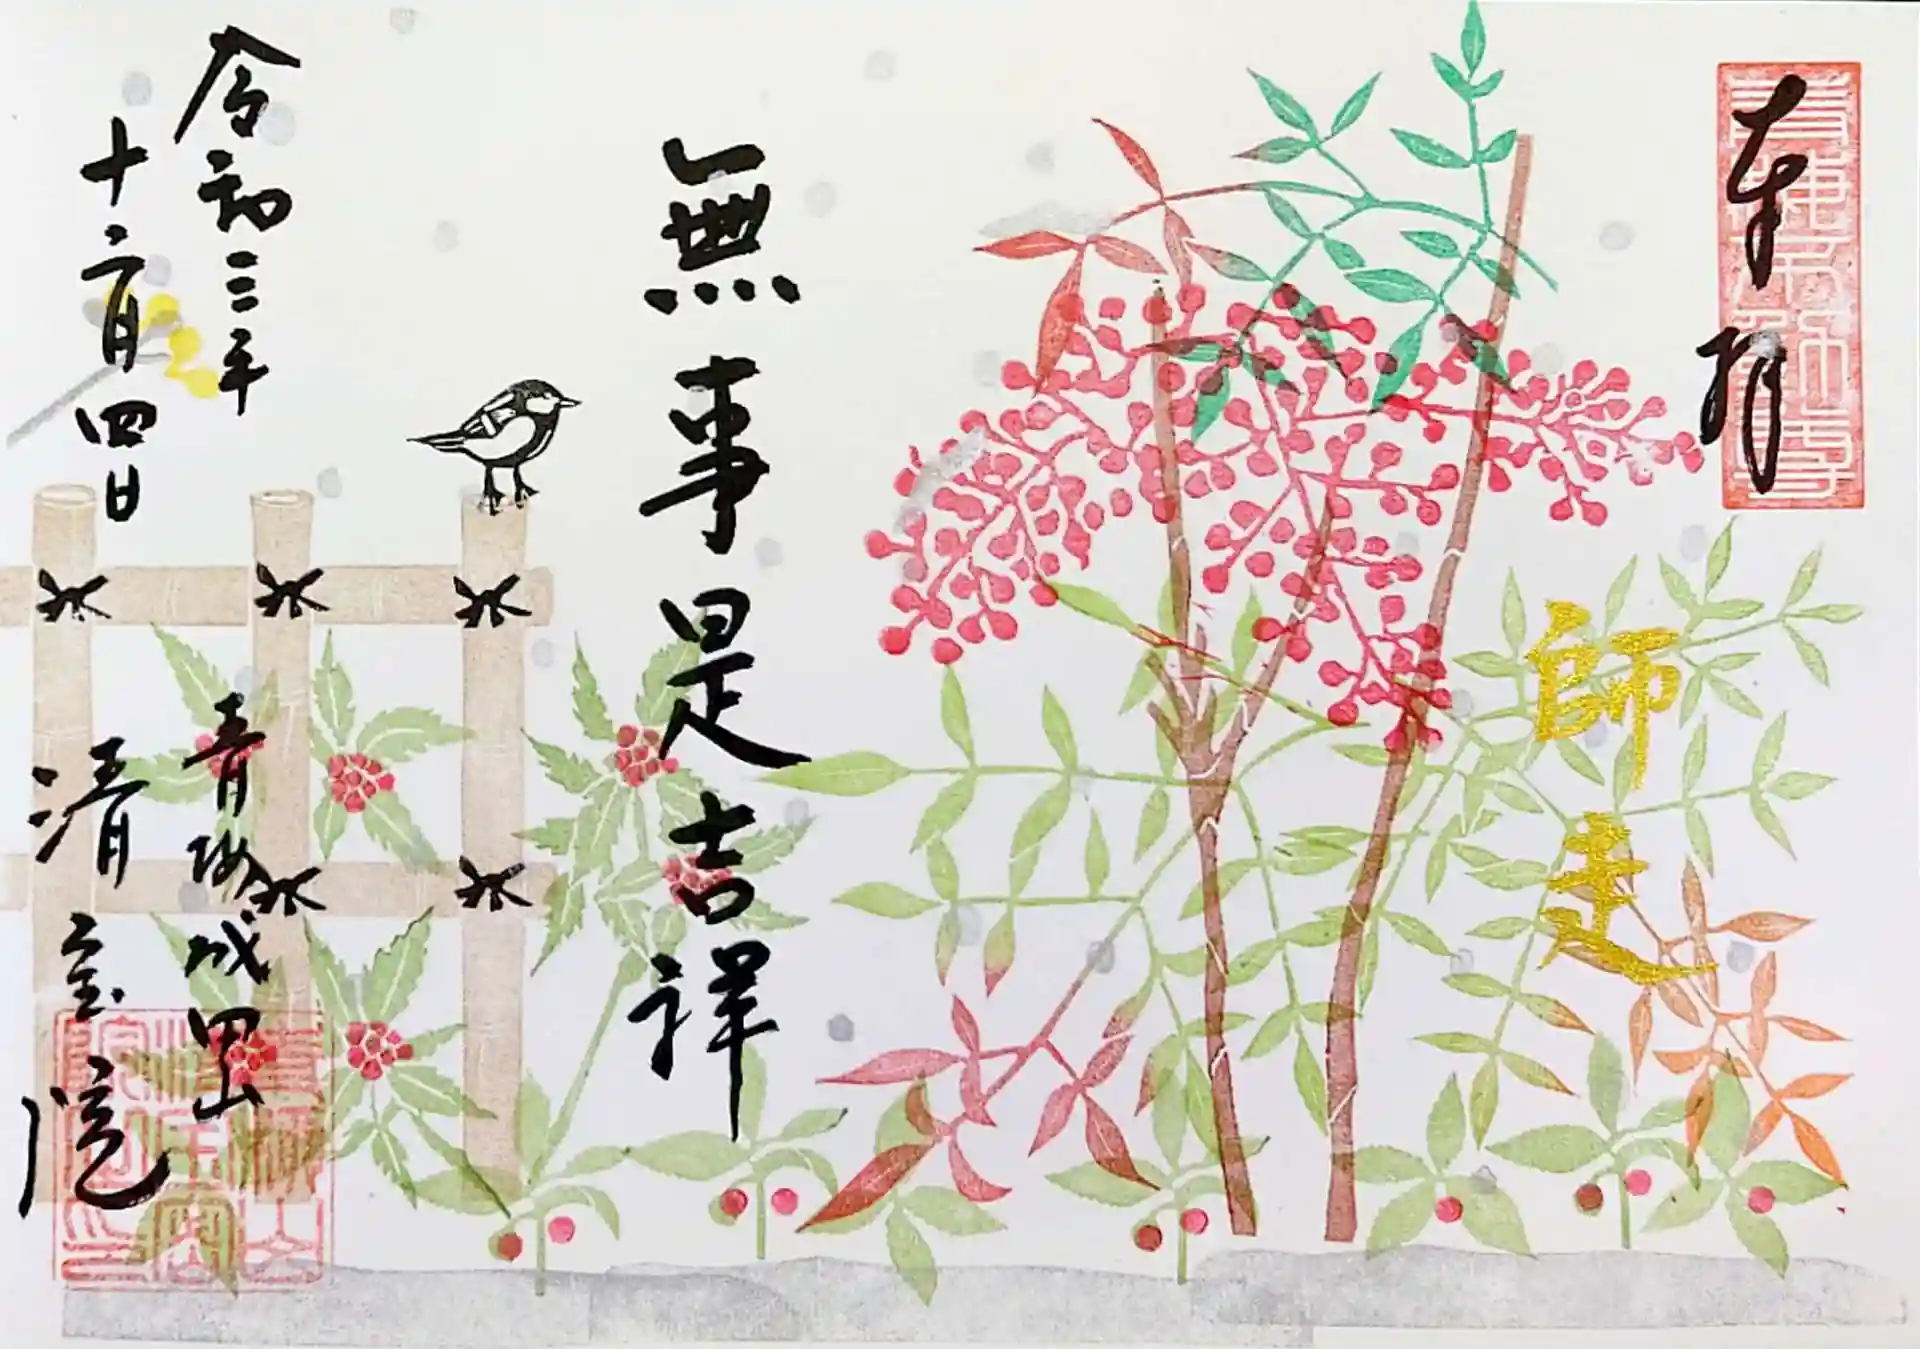 奉拝
師走
無事是吉祥
令和三年
十二月四日
青梅成田山
清宝院